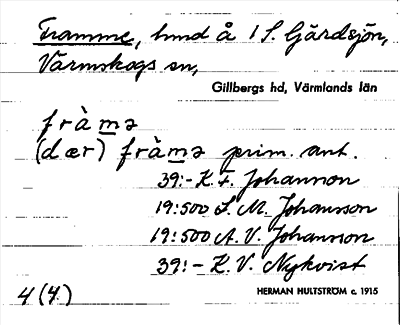 Framme, hmd å 1 S. Gärdsjön,
Värmskogs sn,
Gillbergs hd, Värmlands län
fràmə
(dær) fràmə prim. ant.
39:- K. F. Johannon
19:500 S. M. Johansson
19:500 A. V. Johansson
39:- K. V. Nykvist
4 (4.) HERMAN HULTSTRÖM c. 1915